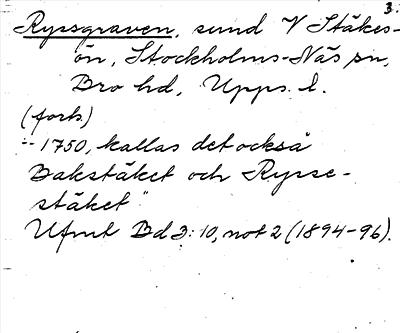 3.
Ryssgraven, sund V Stäkes-
ön, Stockholms-Näs sn,
Bro hd, Upps. l.
(forts.)
:- 1750, kallas det också
Bakstäket och Rysse-
stäket"
Ufmt Bd 3:10, not 2 (1894-96).